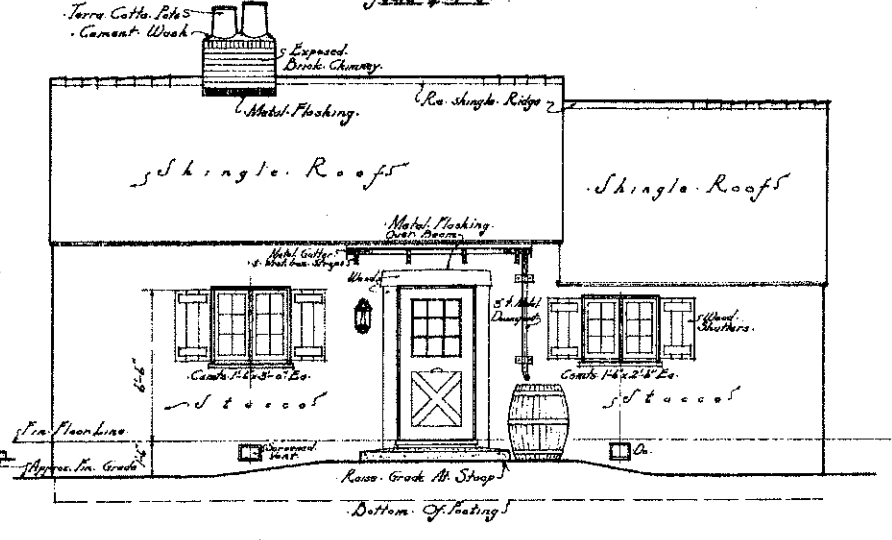 Terra Cotta Pots
Cement Wash
Exposed
Brick Chimney.
Metal Flashing.
Re-shingle Ridge
Shingle Roof
Shingle Roof
Metal Flashing
Over Beam
Metal Gutter
Wood
Metal
Downspout
Wood
Shutters.
Casmts. 1'-6"x3'-0" Ea.
Casmts. 1'-6"x2'-8" Ea.
6'-6"
Stucco
Stucco
Fin. Floor Line
Screened
Vent.
Do.
1'-6"
Approx. Fin. Grade
Raise Grade At Stoop
Bottom Of Footing